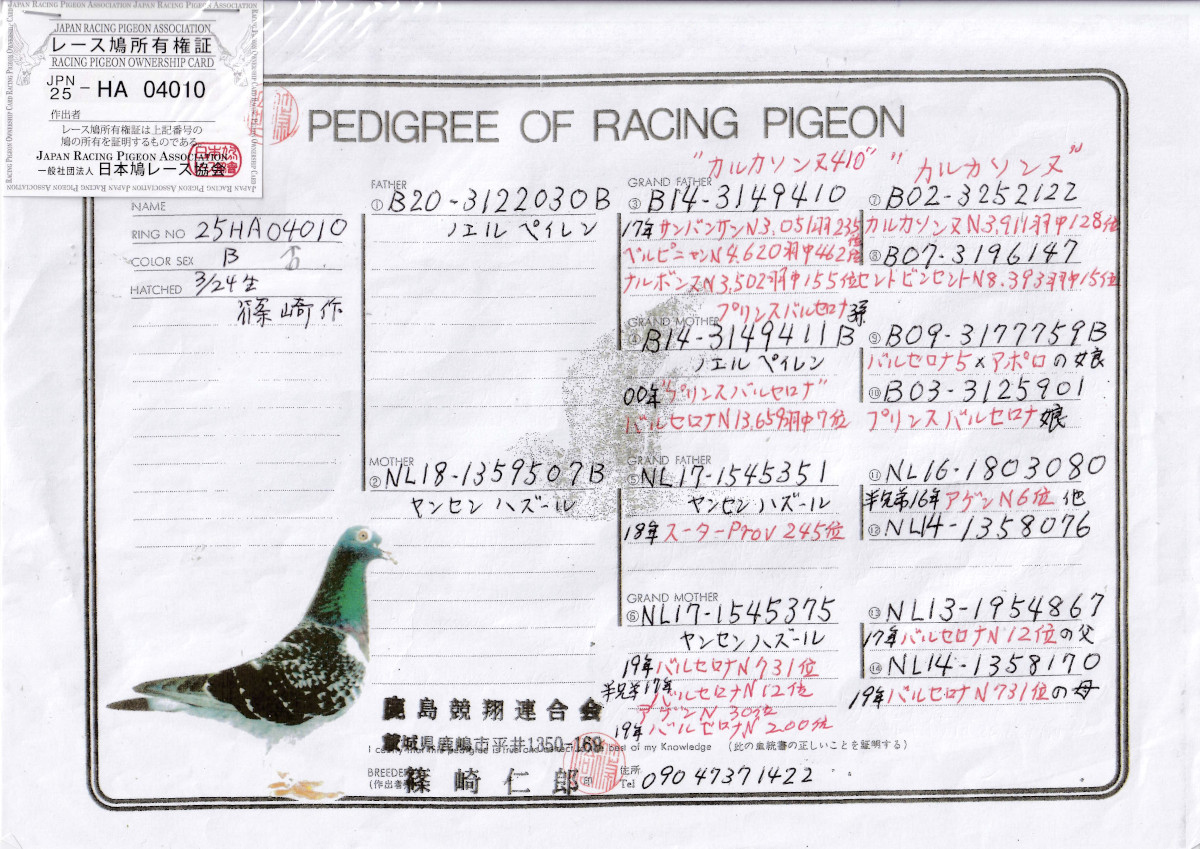 JAPAN RACING PIGEON ASSOCIATION
レース鳩所有権証
RACING PIGEON OWNERSHIP CARD
JPN
25 - HA 04010
作出者
レース鳩所有権証は上記番号の
鳩の所有を証明するものである
JAPAN RACING PIGEON ASSOCIATION
一般社団法人 日本鳩レース協会
PEDIGREE OF RACING PIGEON
NAME
RING NO 25HA04010
COLOR SEX B ♂
HATCHED 3/24生
篠崎作
FATHER
① B20-3122030B
ノエルペイレン
MOTHER
② NL18-1359507B
ヤンセンハズール
"カルカソンヌ410"
GRAND FATHER
③ B14-3149410
17年サンバンサンN3,051羽235位
ペルピニャンN4,620羽中462位
ナルボンヌN3,502羽中155位
プリンスバルセロナ孫
GRAND MOTHER
④ B14-3149411B
ノエルペイレン
00年"プリンスバルセロナ"
バルセロナN13,659羽中7位
GRAND FATHER
⑤ NL17-1545351
ヤンセンハズール
18年スーターProv 245位
GRAND MOTHER
⑥ NL17-1545375
ヤンセンハズール
19年バルセロナN731位
半兄弟17年バルセロナN12位
アゲンN30位
19年バルセロナN200位
"カルカソンヌ"
⑦ B02-3252122
カルカソンヌN3,911羽中128位
⑧ B07-3196147
セントビンセントN8,393羽中15位
⑨ B09-3177759B
バルセロナ5×アポロの娘
⑩ B03-3125901
プリンスバルセロナ娘
⑪ NL16-1803080
半兄弟16年アゲンN6位他
⑫ NL14-1358076
⑬ NL13-1954867
17年バルセロナN12位の父
⑭ NL14-1358170
19年バルセロナN731位の母
鹿島競翔連合会
茨城県鹿嶋市平井1350-169
best of my Knowledge (此の血統書の正しいことを証明する)
BREEDER
(作出者)
篠崎仁郎
印
住所
Tel 09047371422